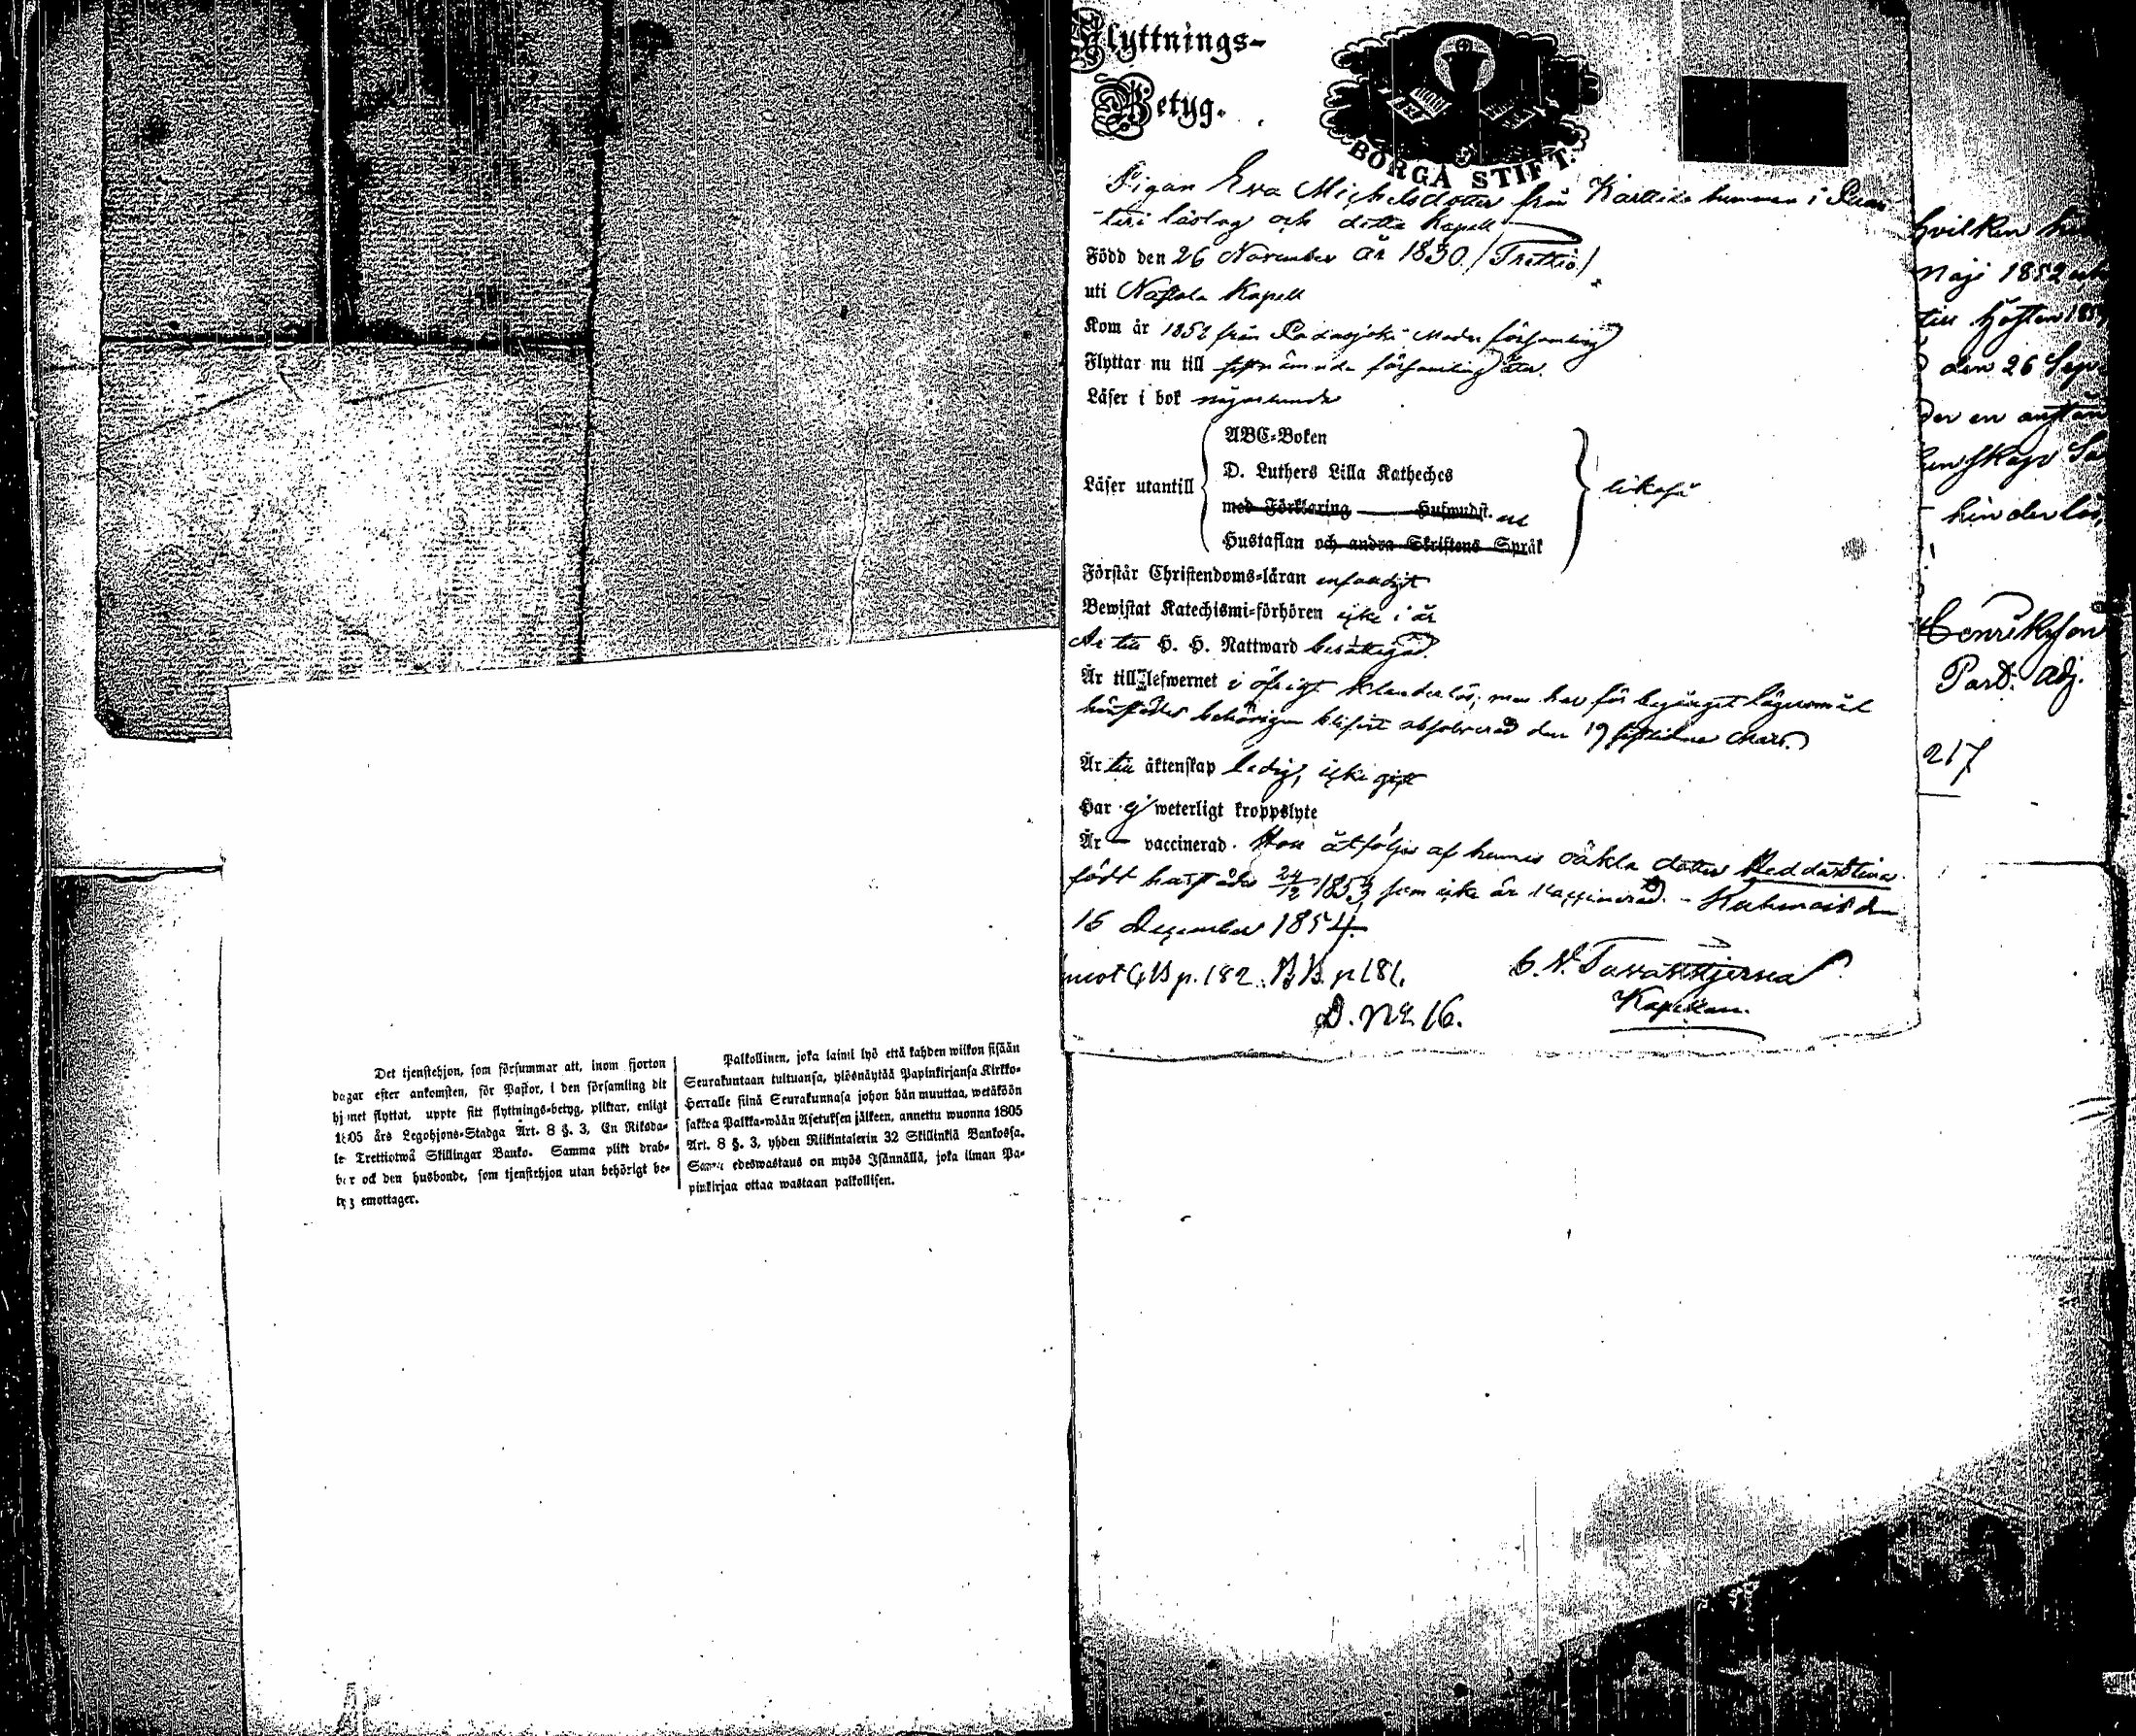 Det tjenstehjon, som försummar att, inom fjorton
dagar efter ankomsten, för Pastor, i den församling dit
hjonet flyttat, uppte sitt flyttnings-betyg, pliktar, enligt
1805 års Legohjons-Stadga Art. 8 §. 3, En Riksda-
ler Trettiotwå Skillingar Banko. Samma plikt drab-
bar ock den husbonde, som tjenstehjon utan behörigt be-
tyg emottager.
Palkollinen, joka laimi lyö että kahden wiikon sisään
Seurakuntaan tultuansa, ylösnäytää Papinkirjansa Kirkko-
Herralle siinä Seurakunnasa johon hän muuttaa, wetäköön
sakkoa Palkka-wään Asetuksen jälkeen, annettu wuonna 1805
Art. 8 §. 3, yhden Riikintalerin 32 Skillinkiä Bankossa.
Sama edeswastaus on myös Isännällä, joka ilman Pa-
pinkirjaa ottaa wastaan palkollisen.
Flyttnings-
Betyg.
BORGÅ STIFT.
Pigan Eva Michelsdotter från i
och detta Kapell
Född den 26 November år 1830. (Trettio)
uti Nastola Kapell
Kom år 1852 från Padasjoki Moder församling
Flyttar nu till sistnämnda församling åter.
Läser i bok någorlunda
Läser utantill
ABC-Boken
D. Luthers Lilla Katheches
med Förklaring — Hufwudst.
Hustaflan och andra Skriftens Språk
likaså
Förstår Christendoms-läran enfaldigt
Bewistat Katechismi-förhören icke i år
Är till H. H. Nattward berättigad.
Är till lefwernet i öfrigt klanderlös; men har för begånget lägersmål
härstädes behörigen blifvit absolverad den 19 sistlidne Mars.
Är till äktenskap ledig, icke gift
Har ej weterligt kroppslyte
Är — vaccinerad. Hon åtföljes af hennes oäkta dotter Hedda Stina
född härstädes 24/12 1853, som icke är vaccinerad. - Kuhmois den
16 December 1854.
p. 182. p 181.
C. N. Tavaststjerna
Kapellan.
D. No 16.
hvilken
Maji 1852 och
till hösten
den 26 Sep
der en
hinderlös
Henriksson
Past. Adj.
217